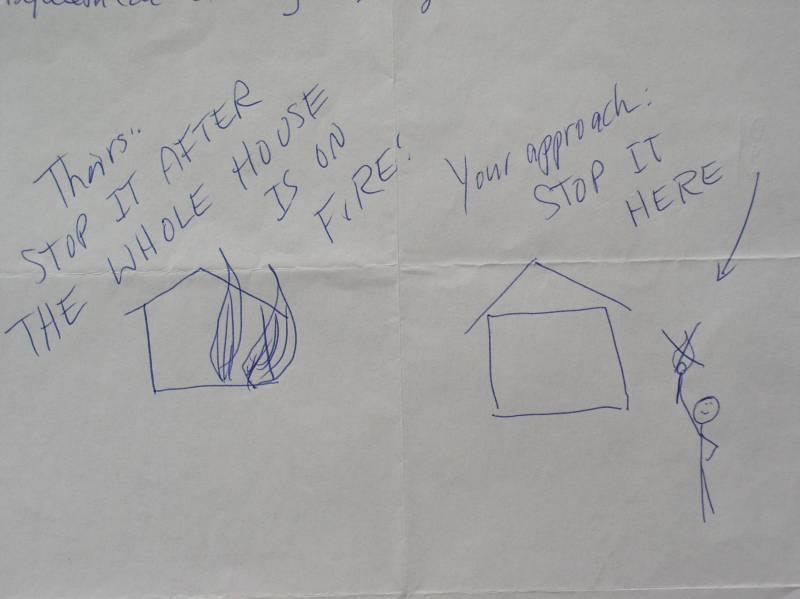 Theirs..
STOP IT AFTER
THE WHOLE HOUSE
IS ON
FIRE!
Your approach:
STOP IT
HERE